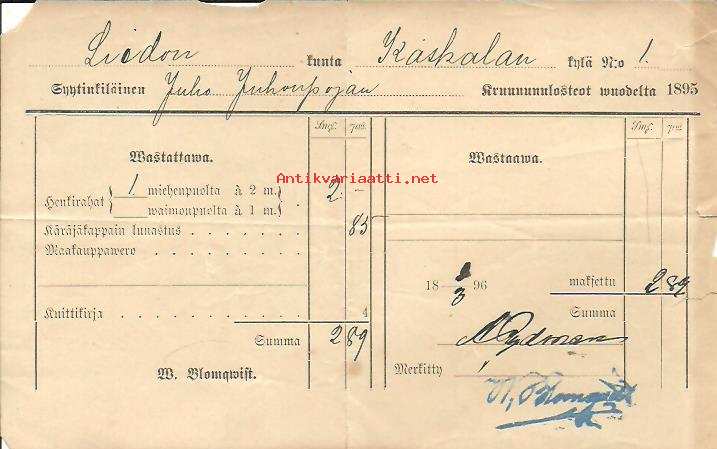 Liedon kunta Käskalan kylä N:o 1.
Syytinkiläinen Juho Juhonpojan Kruununulosteot wuodelta 1895
Smf. pni. Smf. pni.
Wastattawa. Wastaawa.
Antikvariaatti.net
antikvariaatti.net
Henkirahat { 1 miehenpuolta à 2 m. } . 2 –
waimonpuolta à 1 m.
Käräjäkappain lunastus . . . . . . . 85
Maakauppawero . . . . . . . .
18 1/3 96 maksettu 2 89
Knittikirja . . . . . 4 Summa
Summa 2 89
Merkitty
W. Blomqwist.
W. Blomqvist